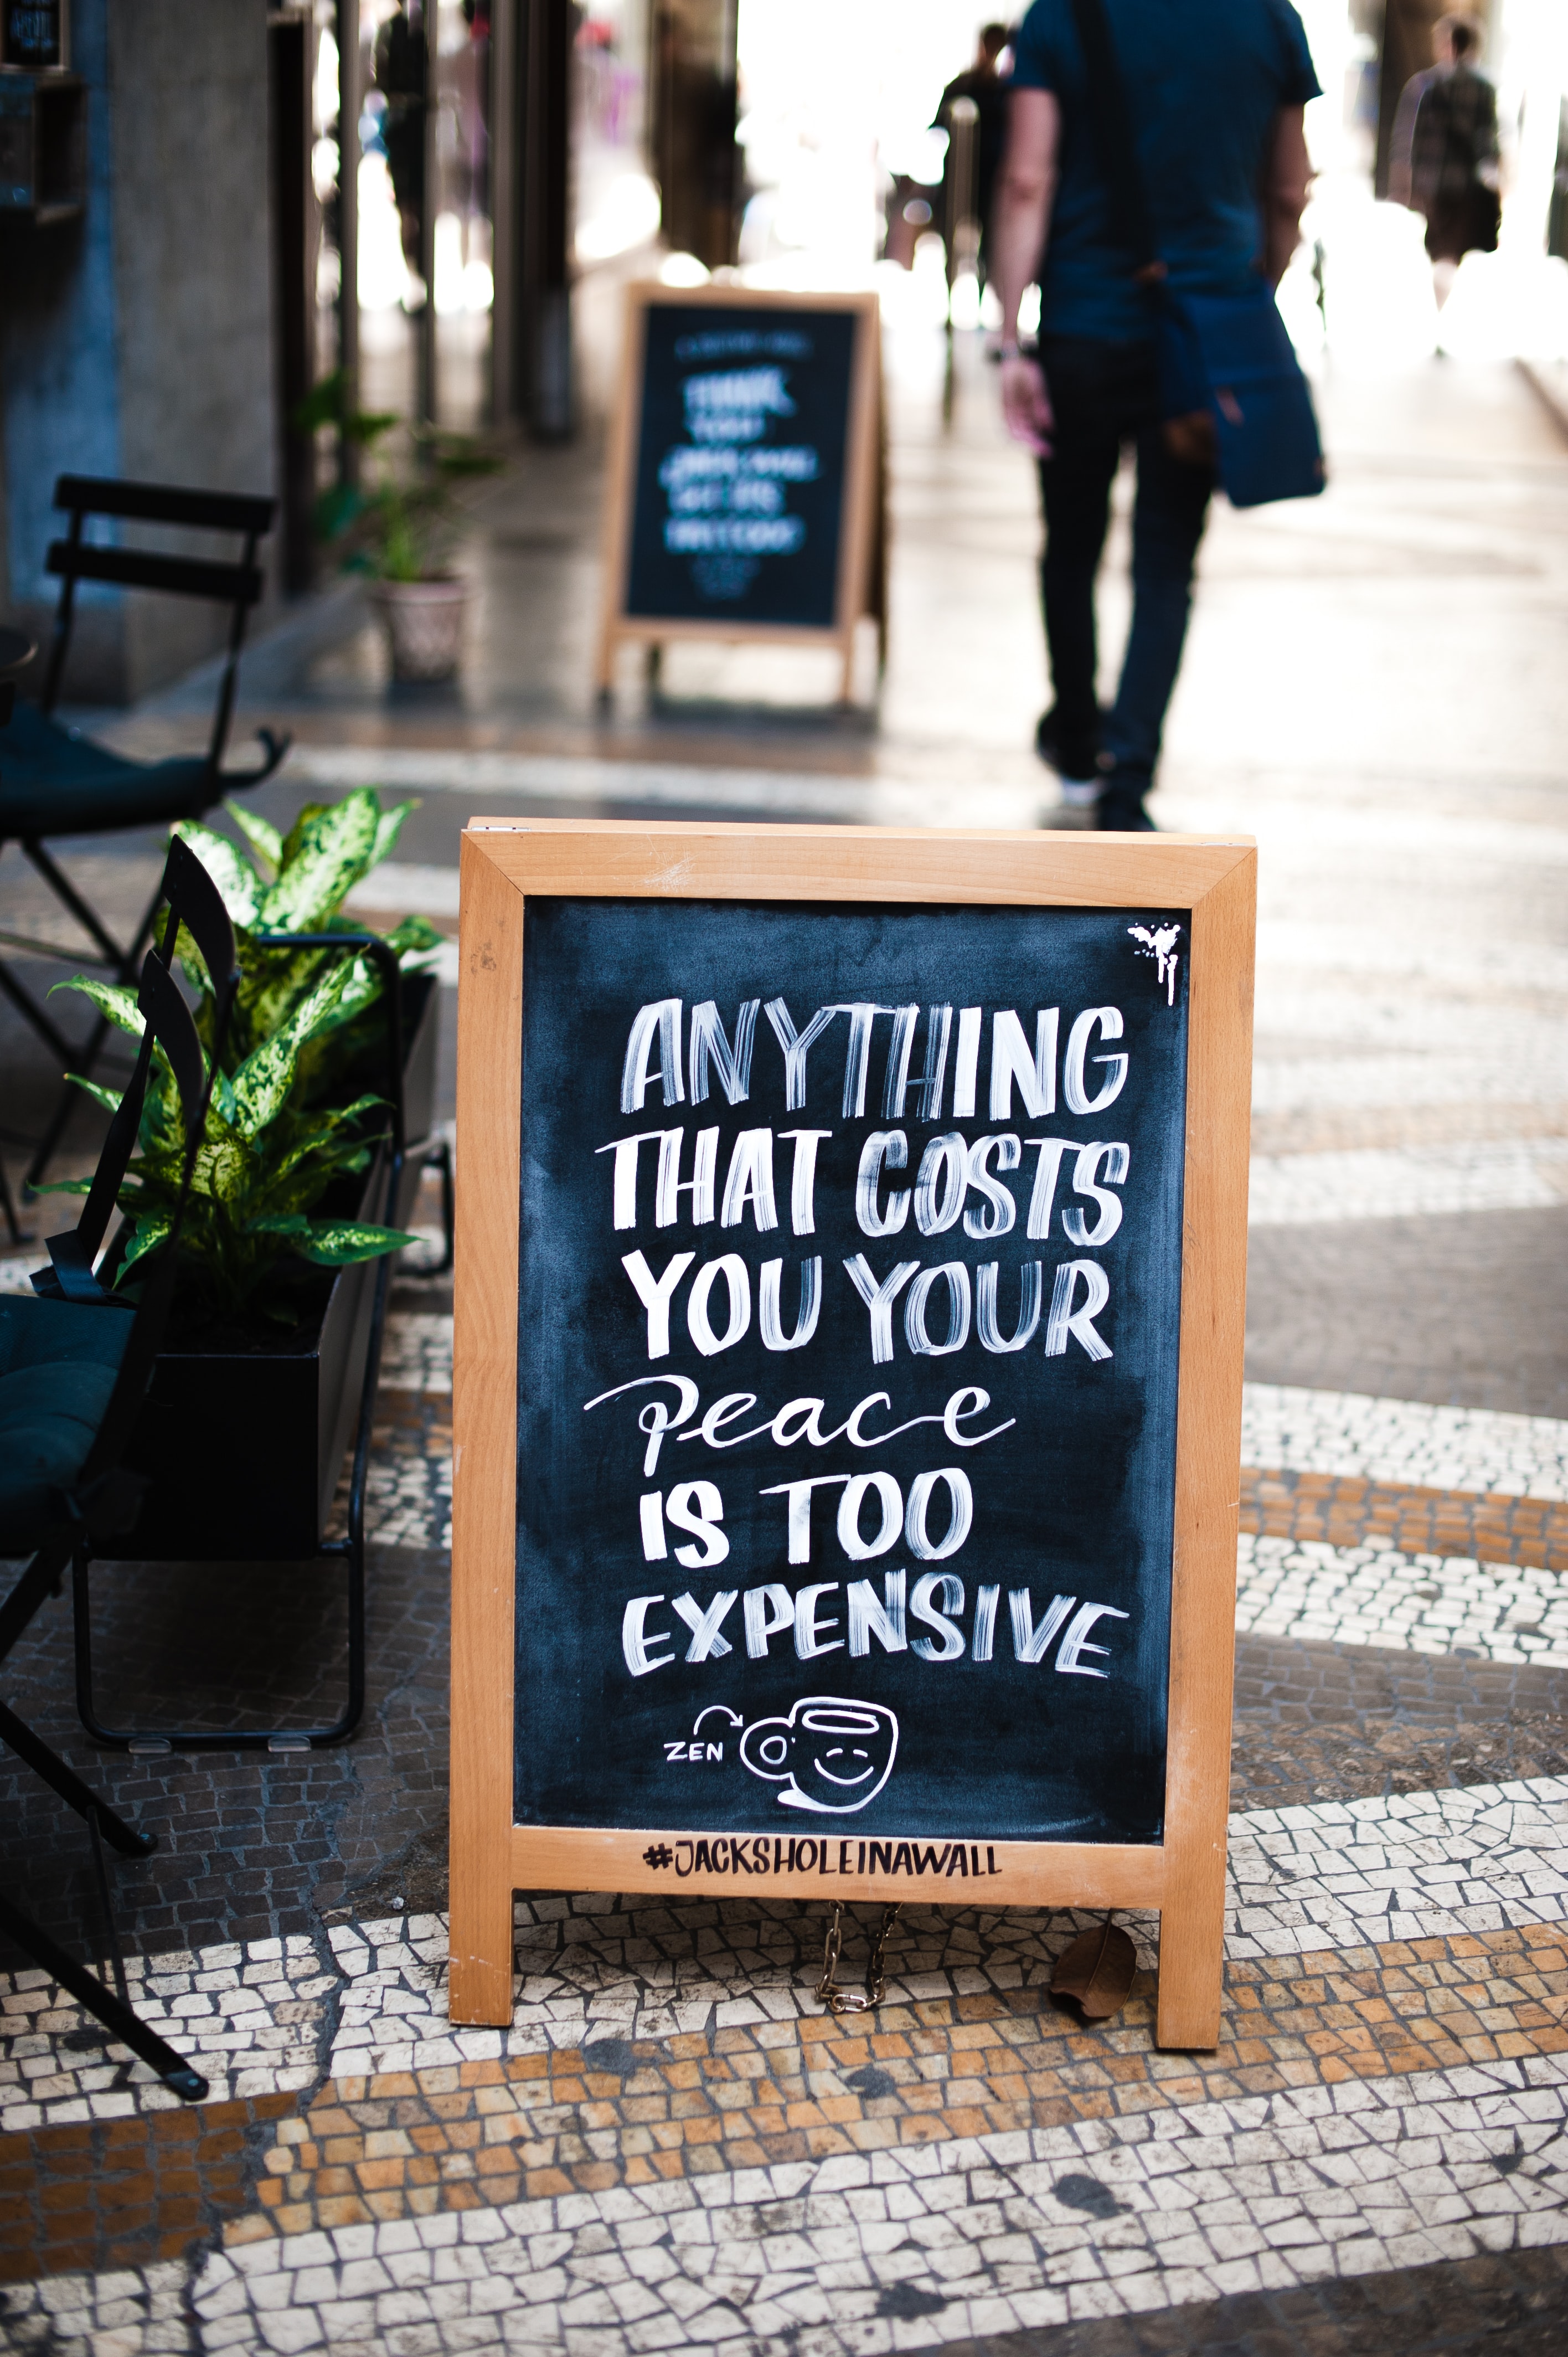 ANYTHING
THAT COSTS
YOU YOUR
peace
IS TOO
EXPENSIVE
ZEN
#JACKSHOLEINAWALL